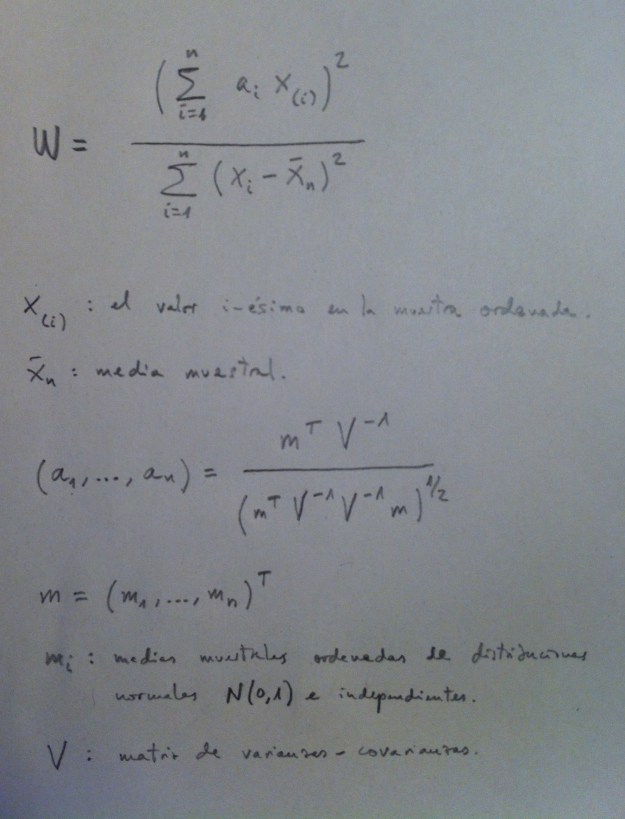 W = (∑_{i=1}^{n} a_i X_{(i)})^2 / ∑_{i=1}^{n} (X_i - X̄_n)^2
X_{(i)} : el valor i-ésimo en la muestra ordenada.
X̄_n : media muestral.
(a_1, ..., a_n) = m^T V^{-1} / (m^T V^{-1} V^{-1} m)^{1/2}
m = (m_1, ..., m_n)^T
m_i : medias muestrales ordenadas de distribuciones
normales N(0,1) e independientes.
V : matriz de varianzas - covarianzas.